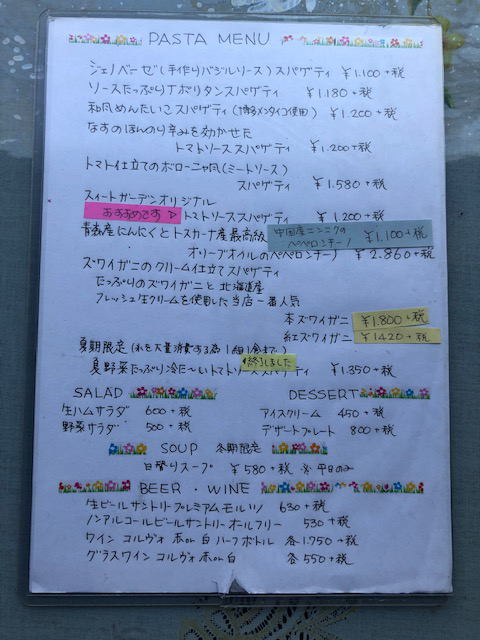 PASTA MENU
ジェノベーゼ(手作りバジルソース)スパゲティ ¥1.100+税
ソースたっぷりナポリタンスパゲティ ¥1.180+税
和風めんたいこスパゲティ(博多メンタイコ使用) ¥1.200+税
なすのほんのり辛みを効かせた
トマトソーススパゲティ ¥1.200+税
トマト仕立てのボローニャ風(ミートソース)
スパゲティ ¥1.580+税
スイートガーデンオリジナル
おすすめです トマトソーススパゲティ ¥1.200+税
青森産にんにくとトスカーナ産最高級 中国産ニンニクのペペロンチーノ ¥1,100+税
オリーブオイルのペペロンチーノ ¥2.860+税
ズワイガニのクリーム仕立てスパゲティ
たっぷりのズワイガニと北海道産
フレッシュ生クリームを使用した当店一番人気
本ズワイガニ ¥1.800+税
紅ズワイガニ ¥1420+税
夏期限定(氷を大量消費する為1組1食まで)
夏野菜たっぷり冷た〜いトマトソーススパゲティ ¥1.350+税
終了しました
SALAD
生ハムサラダ 600+税
野菜サラダ 500+税
DESSERT
アイスクリーム 450+税
デザートプレート 800+税
SOUP 冬期限定
日替りスープ ¥580+税 ※平日のみ
BEER・WINE
生ビールサントリープレミアムモルツ 630+税
ノンアルコールビールサントリーオールフリー 530+税
ワイン コルヴォ 赤or白 ハーフボトル 各1.750+税
グラスワイン コルヴォ 赤or白 各550+税